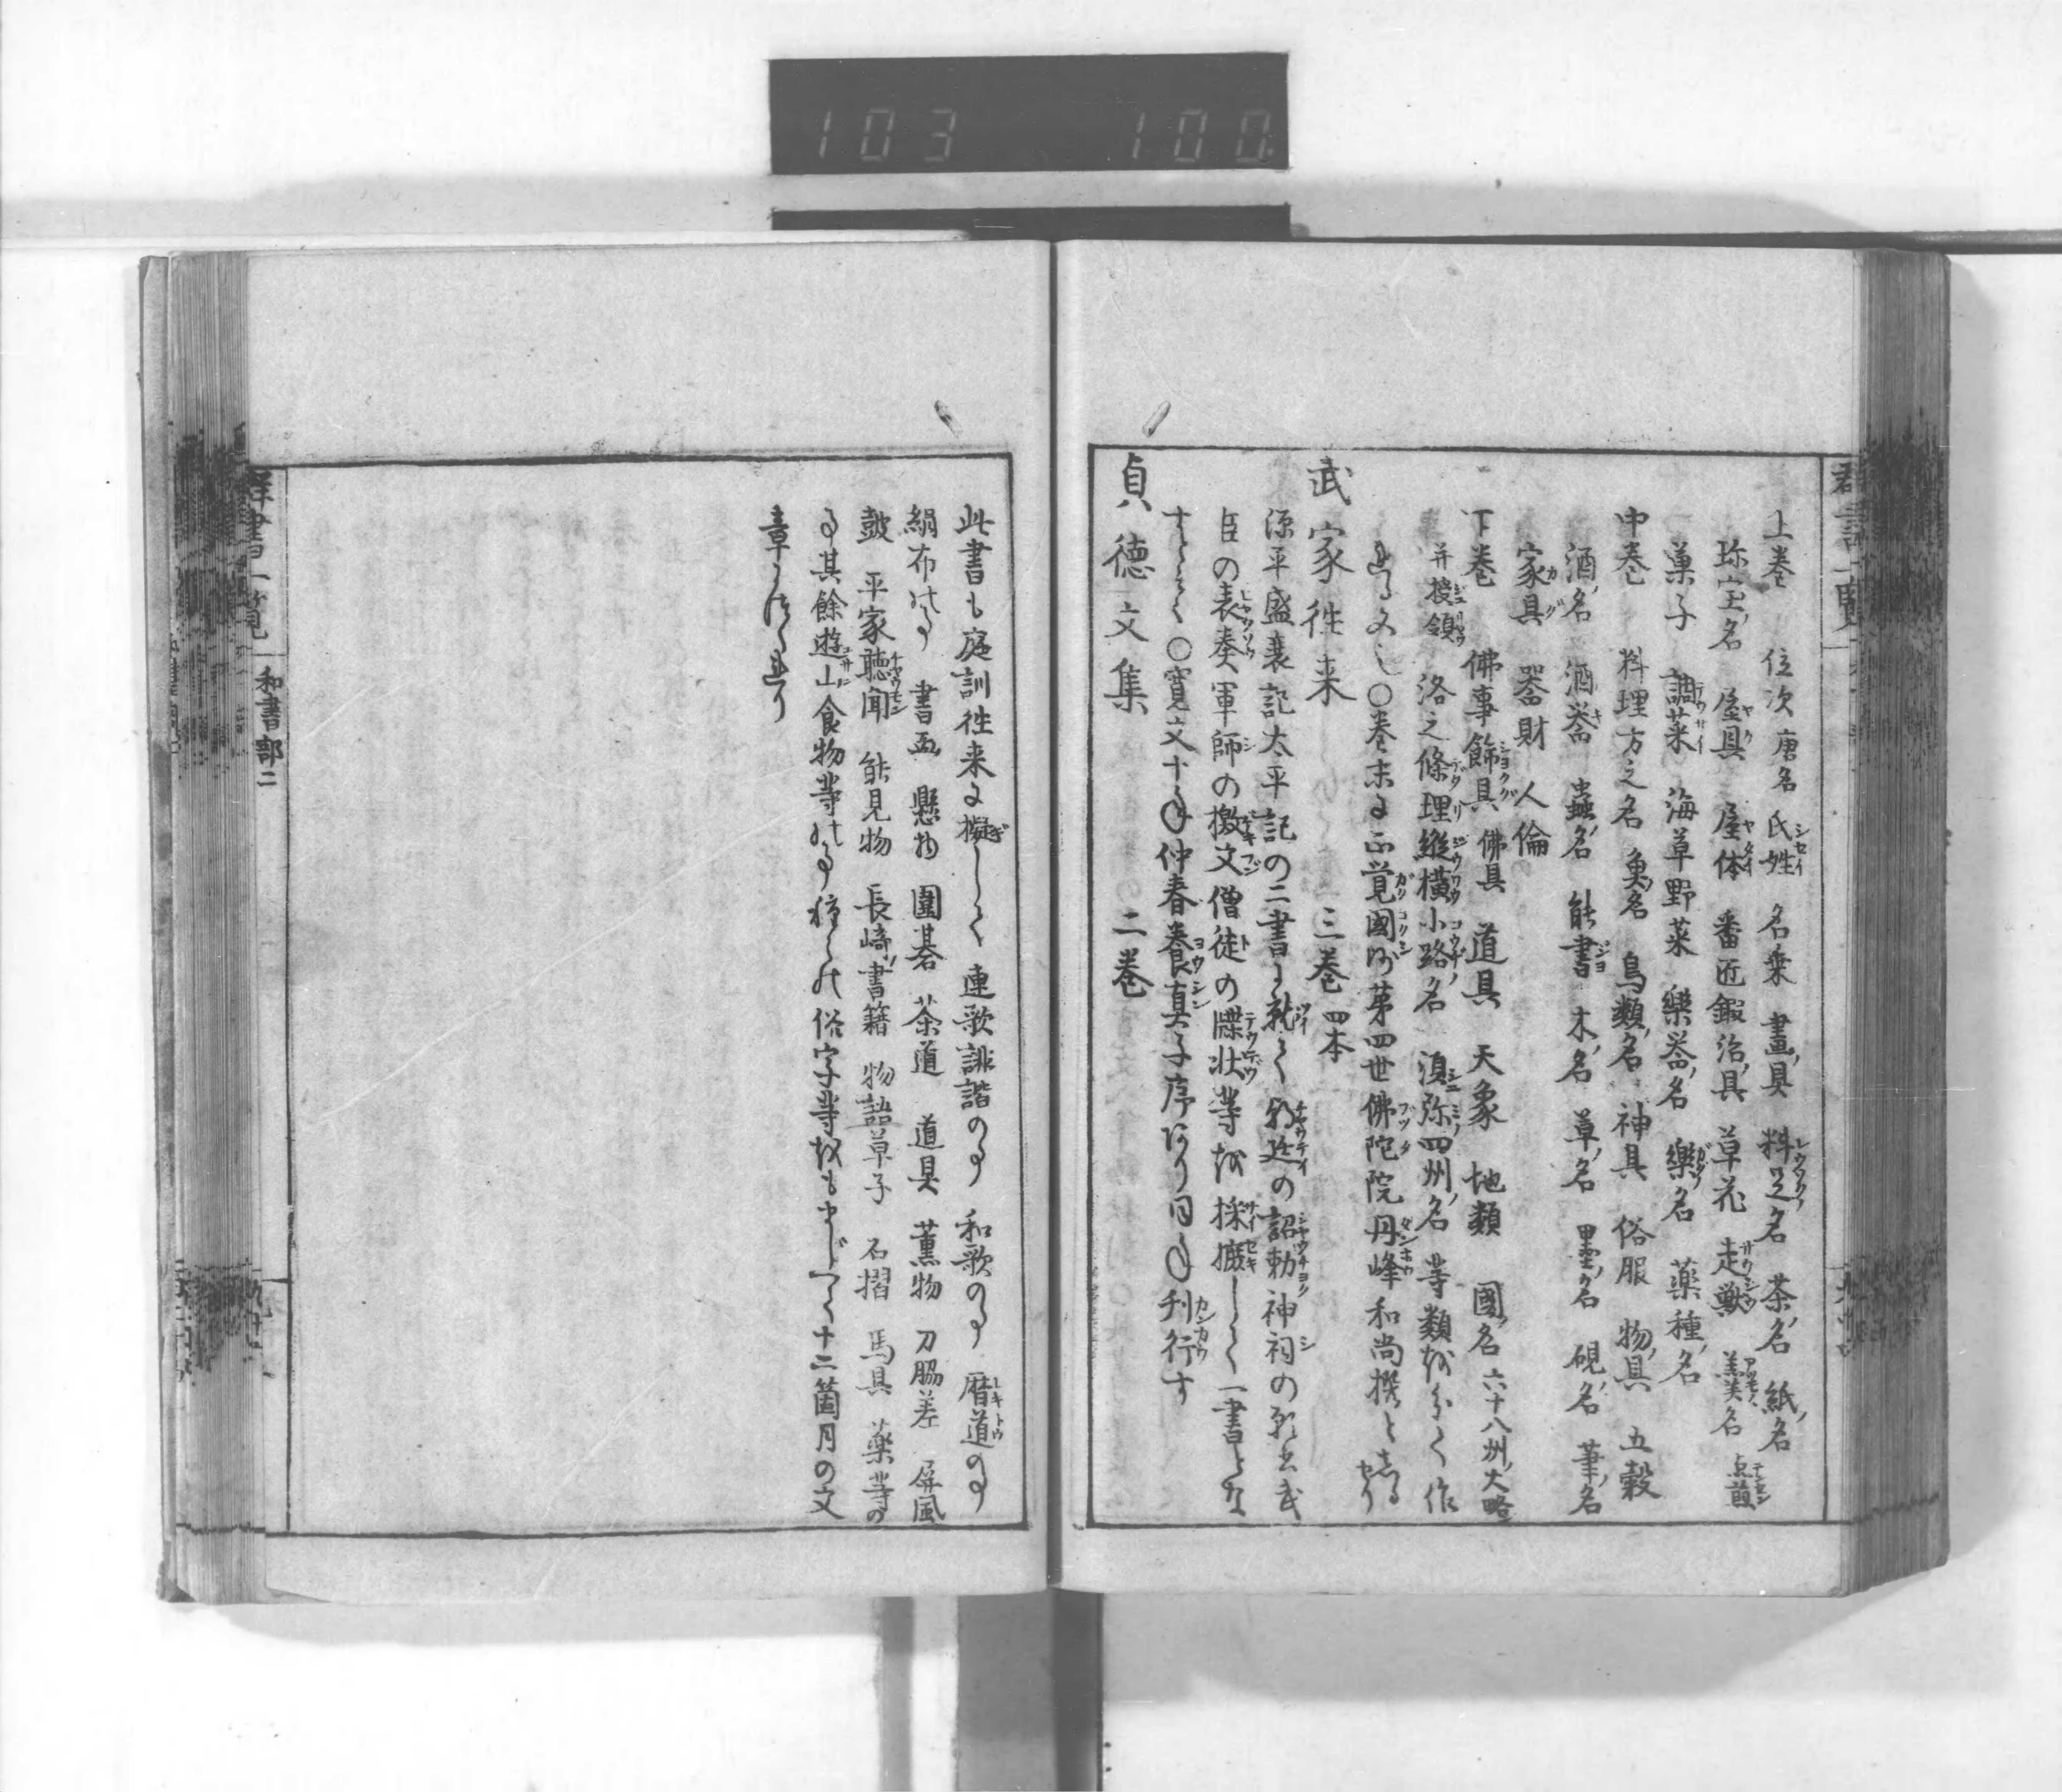 103 100
上巻 位次 唐名 氏姓 名乗 畫ノ具 料足ノ名 茶ノ名 紙ノ名
珎宝ノ名 屋具 屋体 番匠鍛冶ノ具 草花 走獣 羹ノ名 点煎
菓子 調菜 海草野菜 樂器ノ名 樂ノ名 薬種ノ名
中巻 料理方之名 魚ノ名 鳥類ノ名 神具 俗服 物ノ具 五穀
酒ノ名 酒器 蟲ノ名 能書 木ノ名 草ノ名 墨ノ名 硯ノ名 筆ノ名
家具 器財 人倫
下巻 佛事餝具 佛具 道具 天象 地類 國ノ名 六十八州ノ大略
并授領 洛之條理縦横小路ノ名 湏弥四州ノ名 等類を分て作
れる文也〇巻末に正覚國師第四世佛陀院丹峰和尚撰としるせり
武家往来 三巻 四本
源平盛衰記太平記の二書に就て朝廷の詔勅神祠の願書武
臣の表奏軍師の檄文僧徒の牒状等を採摭して一書とな
すもの也〇寛文十年仲春養真子序あり同年刊行す
貞徳文集 二巻
群書一覧 和書部二
此書も庭訓往来に擬して 連歌誹諧の事 和歌の事 暦道の事
絹布の事 書画 懸物 圍碁 茶道 道具 薫物 刀脇差 屏風
皷 平家聴聞 能見物 長崎ノ書籍 物語草子 石摺 馬具 薬等の
事其餘遊山食物等の事種々の俗字等をもまじへて十二箇月の文
章につくれり